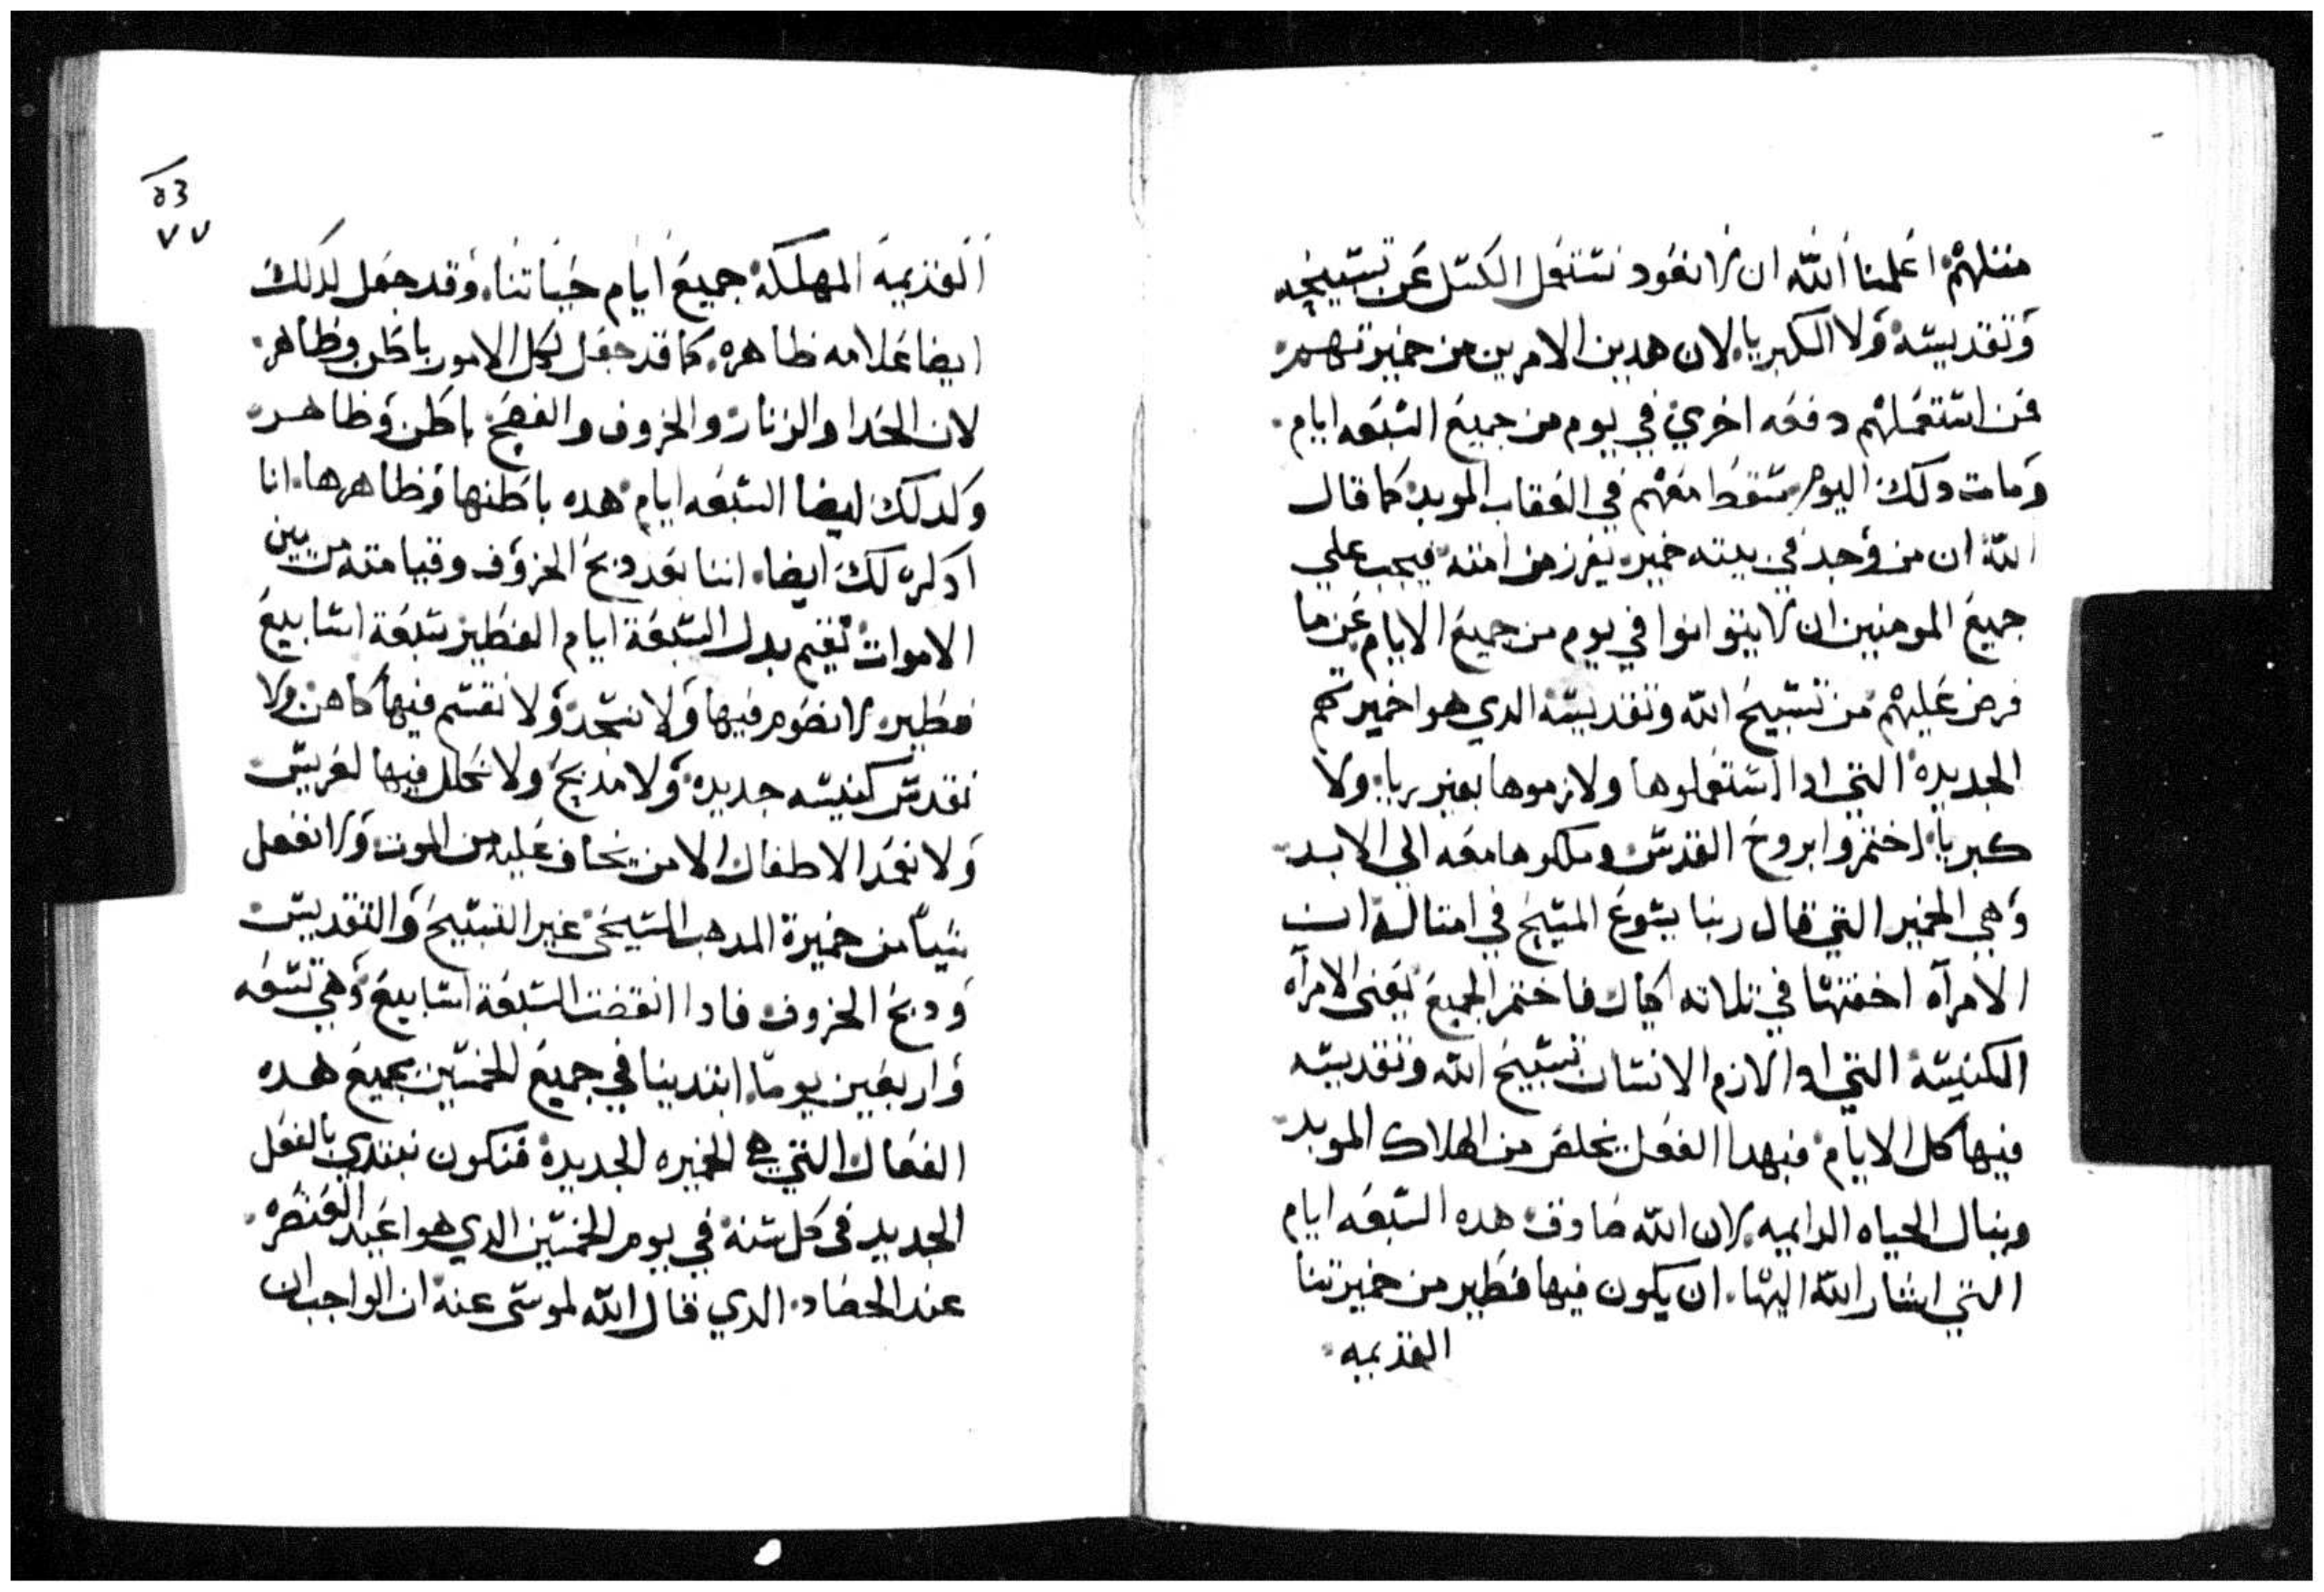 مثلهم اعلمنا الله ان لا نعود نستعمل الكسل عن تسبيحه
وتقديسه ولا الكبريا. لان هدين الامرين من خميرتهم
فمن استعملهم دفعه اخري في يوم من جميع السبعه ايام.
ومات دلك اليوم سقط معهم في العقاب الموبد كما قال
الله ان من وجد في بيته خمير يفرز من امته فيجب علي
جميع المومنين ان لا يتوانوا في يوم من جميع الايام عن ما
فرض عليهم من تسبيح الله وتقديسه الدي هوا خميرتهم
الجديده التي ادا استعملوها ولازموها بغير ريا ولا
كبريا اختمروا بروح القدس وملكوها معه الي الابد
وهي الخمير التي قال ربنا يسوع المسيح في امثاله ان
الامراه اخفتها في تلاته اكيال فاختمر الجميع يعني الامراه
الكنيسه التي ادا لازم الانسان تسبيح الله وتقديسه
فيها كل الايام فبهدا الفعل يخلص من الهلاك الموبد
وينال الحياه الدايمه. لان الله صادق هده السبعه ايام
التي اشار الله اليها. ان يكون فيها فطير من خميرتنا
القديمه
٧٧
القديمه المهلكه جميع ايام حياتنا. وقد جعل لدلك
ايضا علامه ظاهره. كما قد جعل لكل الامور باطن وظاهر.
لان الحدا والزنار والخروف والفصح باطن وظاهر
وكدلك ايضا السبعه ايام هده باطنها وظاهرها. انا
ادكره لك ايضا. اننا بعد دبح الخروف وقيامته من بين
الاموات نقيم بدل السبعة ايام الفطير سبعة اسابيع
فطير. لا نصوم فيها ولا نسجد ولا نقسم فيها كاهن ولا
نقدس كنيسه جديده ولا مدبح ولا نكلل فيها لعريس
ولا نعمد الاطفال الا من يخاف عليه من الموت ولا نفعل
شياً من خميرة المدهب المسيحي غير التسبيح والتقديس
ودبح الخروف فادا انقضت السبعة اسابيع وهي تسعه
واربعين يوماً. ابتدينا في جميع الخمسين بجميع هده
الفعال التي هي الخميره الجديده فنكون نبتدي بالفعل
الجديد في كل سنه في يوم الخمسين الدي هوا عيد العنصره.
عند الحصاد. الدي قال الله لموسي عنه ان الواجب ان